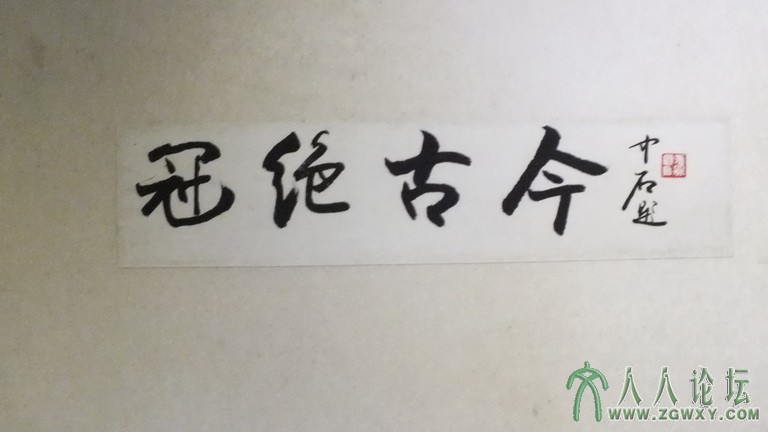 冠绝古今
中石题
人人论坛
www.zgwxy.com